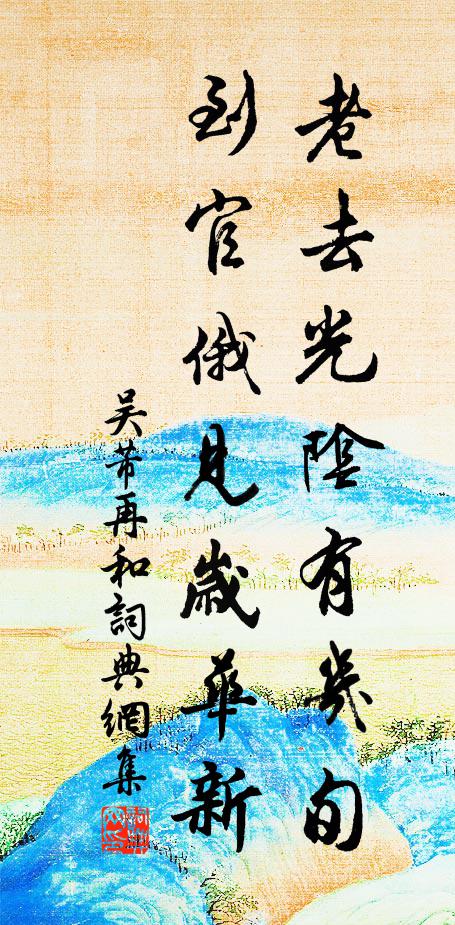 老去光陰有幾旬
到官俄見歲華新
吴芾再和詞典網集